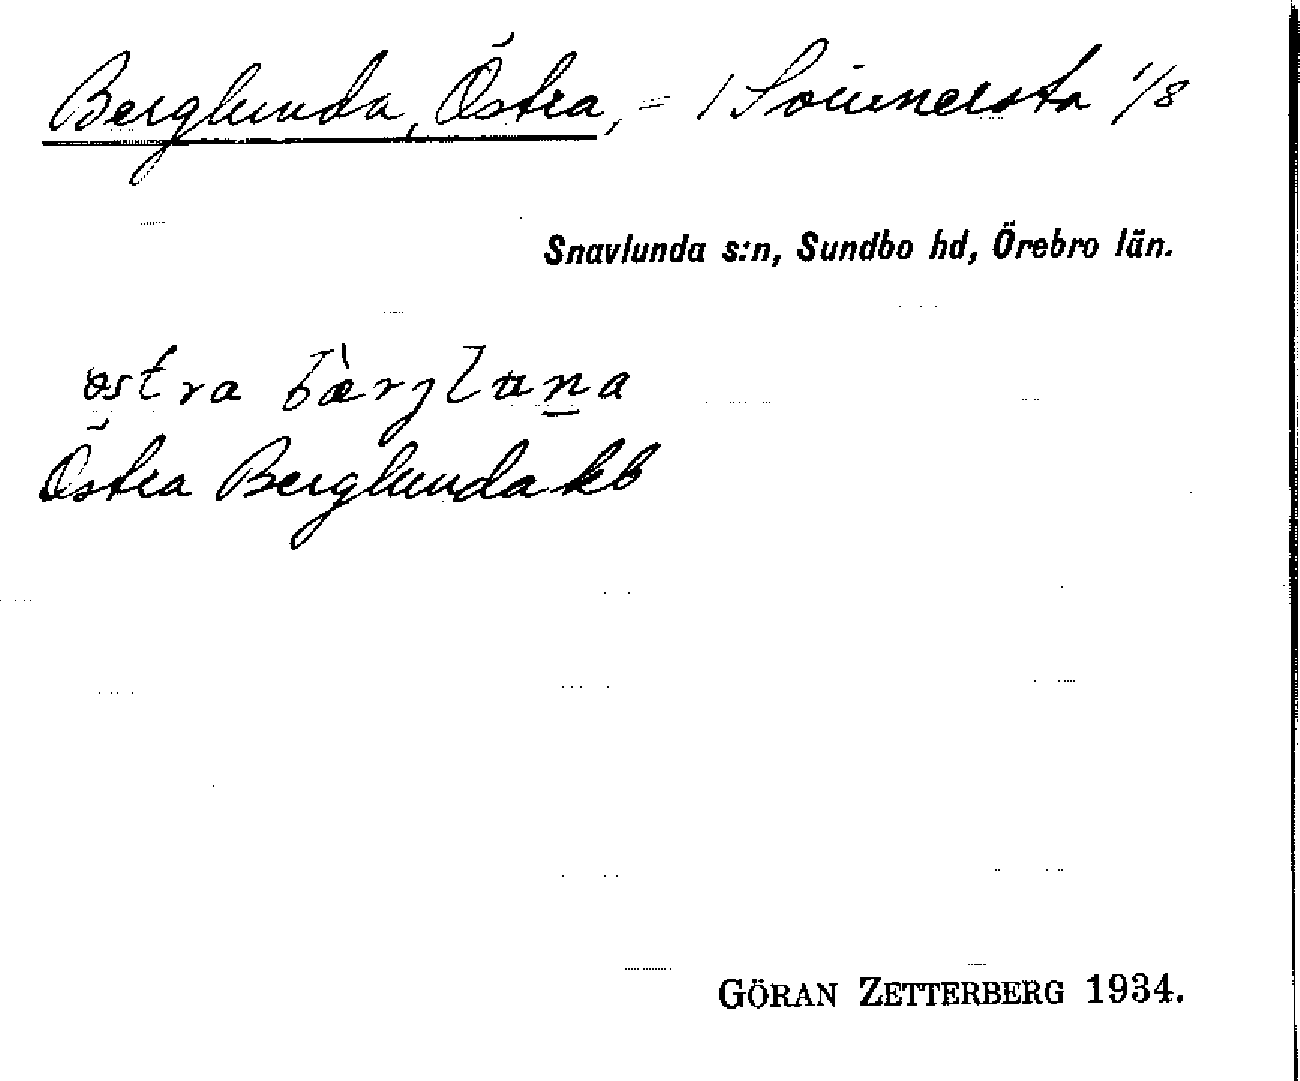 Berglunda, Östra, = 1 Sommersta 1/8
Snavlunda s:n, Sundbo hd, Örebro län.
östra bàrgluna
Östra Berglunda kb
GÖRAN ZETTERBERG 1934.